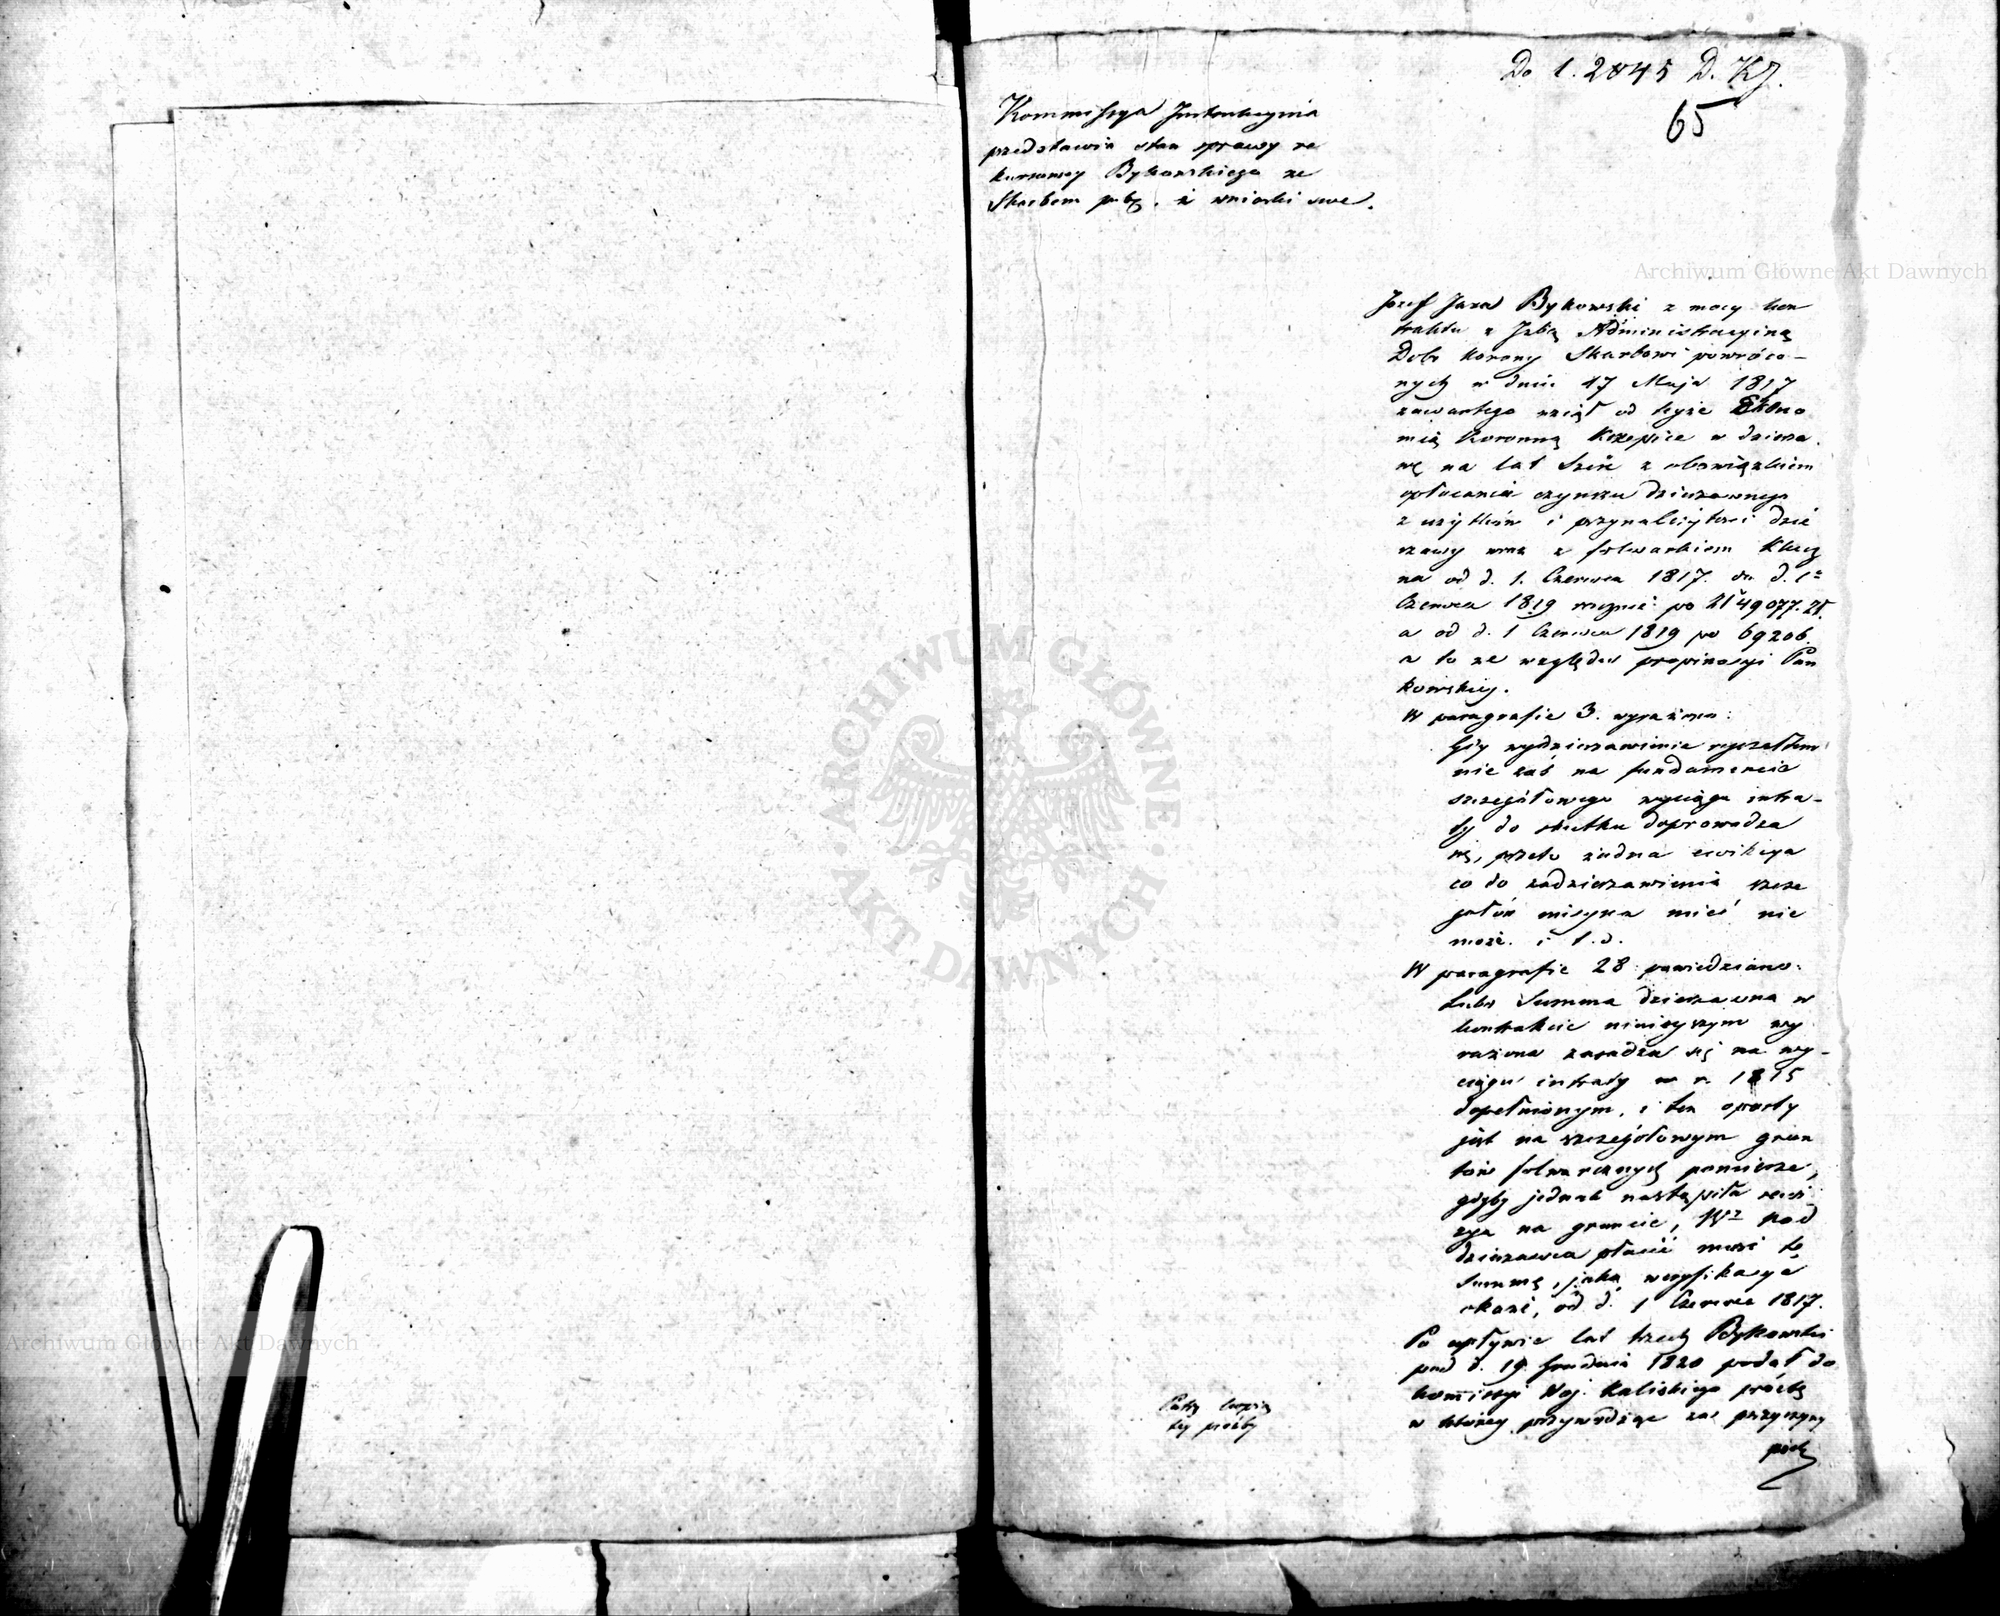 Do l. 2845 D. K J.
65
Kommissya Instrukcyjna
przedstawia stan sprawy re
kursowey Bykowskiego ze
Skarbem pub. i wnioski swe.
Archiwum Główne Akt Dawnych
Józef Jaxa Bykowski z mocy kon
traktu z Izbą Administracyiną
Dóbr Korony Skarbowi powróco-
nych w dniu 17 Maja 1817
zawartego wziął od teyże Ekono
mią Koronną Krzepice w dzierża
wę na lat Sześć z obowiązkiem
opłacania czynszu dzierżawnego
z użytków i przynależytości dzie
rżawy wraz z folwarkiem Klucz
na od d. 1. Czerwca 1817. do d. 1o
Czerwca 1819 rocznie po Zł 49077. 21.
a od d. 1 Czerwca 1819 po 69206.
a to ze względu propinacyi Pan
kowskiey.
W paragrafie 3. wyrażono:
Gdy wydzierżawienie ryczałtem
nie zaś na fundamencie
szczegółowego wyciągu intra-
ty do skutku doprowadza
się, przeto żadna ewikcya
co do zadzierżawienia szcze
gółów mieysca mieć nie
może. i t. d.
W paragrafie 28 powiedziano:
Lubo Summa dzierżawna w
kontrakcie ninieyszym wy
rażona zasadza się na wy-
ciągu intraty w r. 1815
dopełnionym, i ten oparty
jest na szczegółowym grun
tów folwarcznych pomiarze,
gdyby jednak nastąpiła rewi
zya na gruncie, Wz Pod
dzierżawca płacić musi tę
Summę, jaką weryfikacya
okaże, od d. 1 Czerwca 1817.
Po upływie lat trzech Bykowski
pod d. 19 Grudnia 1820 podał do
Kommissyi Woj. Kaliskiego prośbę
w którey przywodząc za przyczyny
Patrz kopię
tey prośby
Archiwum Główne Akt Dawnych
ARCHIWUM GŁÓWNE · AKT DAWNYCH ·